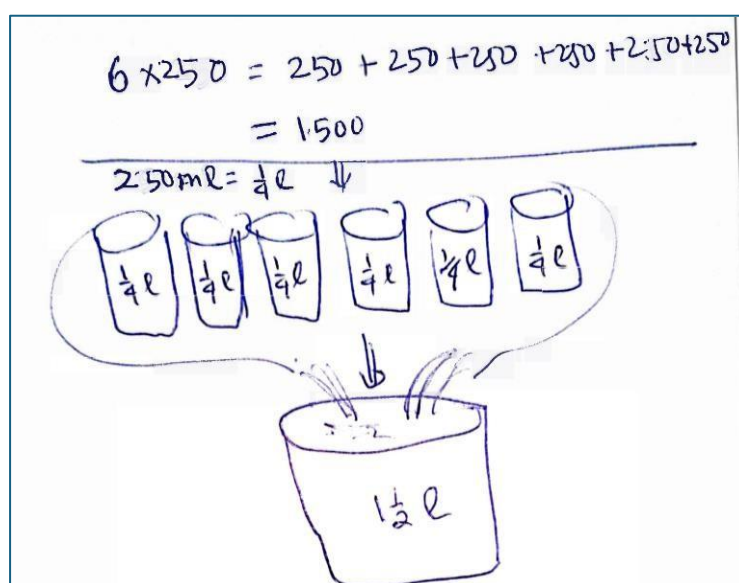 6 × 250 = 250 + 250 + 250 + 250 + 2.50 + 250
= 1.500
2.50 ml = 1/4 l ⇓
1/4 l 1/4 l 1/4 l 1/4 l 1/4 l 1/4 l
⇓
1 1/2 l